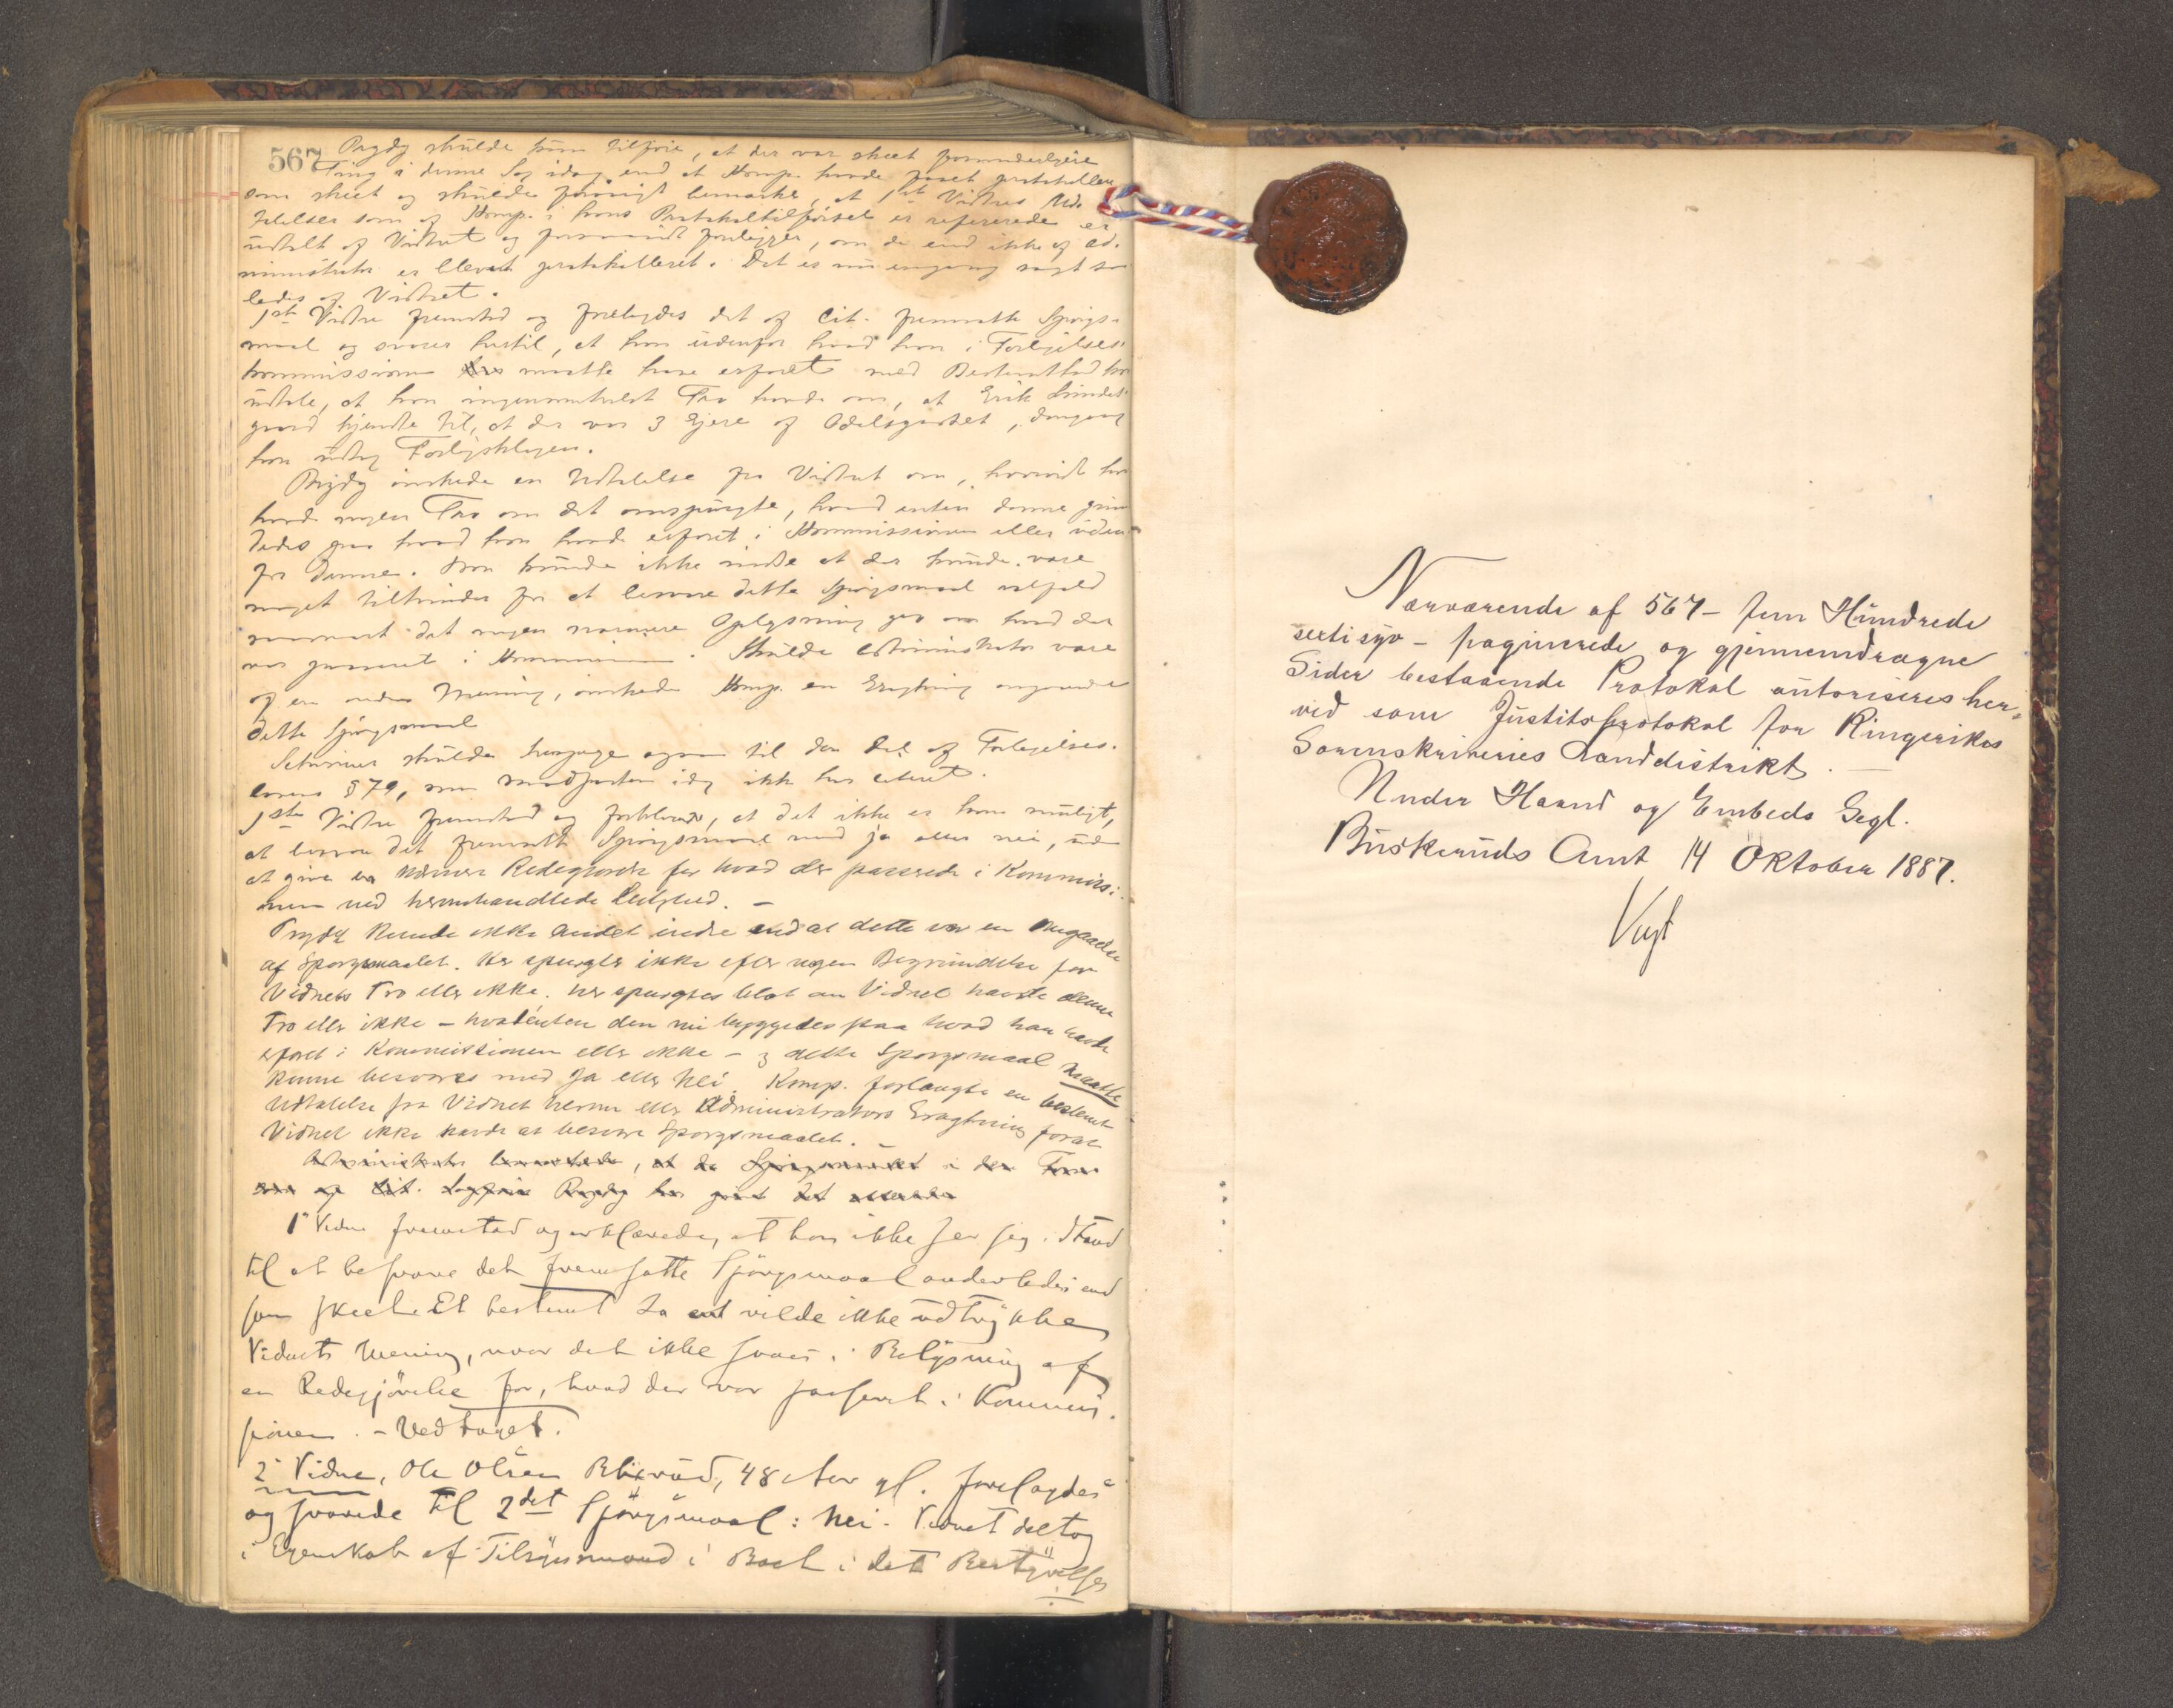 567
Rygdg skulde kun tilføie, at der var skeet
Ting i denne Sag idag end at Komp. havde
som skeet og skulde forøvrigt bemærke, at 1ste Vidnes Ud-
talelser som af Komp. i hans Protokoltilførsel er refererede er
udtalt af Vidnet og forsaavidt foreligger, om de end ikke af Ad-
ministrator er blevet protokolleret. Det er nu engang sagt saa
ledes af Vidnet.
1ste Vidne fremstod og forelagdes det af Cit. fremsatte Spørgs-
maal og svarer hertil, at han udenfor hvad han i Forligelses-
kommissionen maatte have erfaret med Bestemthed kan
udtale, at han ingensomhelst Tro havde om, at Erik
gaard kjendte til, at der var 3 Ejere af Odelsgodset, dengang
han udtog Forligsklagen.
Rygdg ønskede en Udtalelse fra Vidnet om, hvorvidt han
havde nogen Tro om det omspurgte, hvad enten denne grun
dedes paa hvad han havde erfaret i Kommissionen eller uden-
for denne. Han kunde ikke indse at der kunde være
noget tilhinder for at besvare dette Spørgsmaal
det nogen nærmere Oplysning gav om hvad der
var passeret i Kommissionen. Skulde Administrator være
af en anden Mening, ønskede Komp. en Eragtning angaaende
dette Spørgsmaal
Schriwer skulde henpege ogsaa til den Del af Forligelses-
lovens § 79, som Modparten idag ikke har citeret.
1ste Vidne fremstod og forklarede, at det ikke er ham muligt,
at besvare det fremsatte Spørgsmaal med ja eller nei, uden
at give en nærmere Redegjørelse for hvad der passerede i Kommissi-
onen ved heromhandlede Leilighed. —
Rygdg kunde ikke andet indse end at dette var en Omgaaelse
af Spørgsmaalet. Her spurgtes ikke efter nogen Begrundelse for
Vidnets Tro eller ikke. her spurgtes blot om Vidnet havde denne
Tro eller ikke – hvadenten den nu byggedes paa hvad han havde
erfaret i Kommissionen eller ikke – og dette Spørgsmaal maatte
kunne besvares med Ja eller Nei. Komp. forlangte en bestemt
Udtalelse fra Vidnet herom eller Administrators Eragtning for at
Vidnet ikke havde at besvare Spørgsmaalet. –
Administrator bemærkede, at da Spørgsmaalet i den Form
som af Cit. Sagfører Rygdg har gjort det
1ste Vidne fremstod og erklærede, at han ikke ser sig istand
til at besvare det fremsatte Spørgsmaal anderledes end
som skeet. Et bestemt Ja vilde ikke udtrykke
Vidnets Mening, naar det ikke sees i Belysning af
en Redegjørelse for, hvad der var passeret i Kommis-
sionen. – Vedtaget.
2det Vidne, Ole Olsen Blixrud, 48 Aar gl. forelagdes
og svarede til 2det Spørgsmaal: Nei. Vidnet deltog
i Egenskab af Tilsynsmand i
Nærværende af 567 – fem Hundrede
sextisyv – paginerede og gjennemdragne
Sider bestaaende Protokol autoriseres her-
ved som Justitsprotokol for Ringerikes
Sorenskriveries Landdistrikt. —
Under Haand og Embeds Segl.
Buskeruds Amt 14 Oktober 1887.